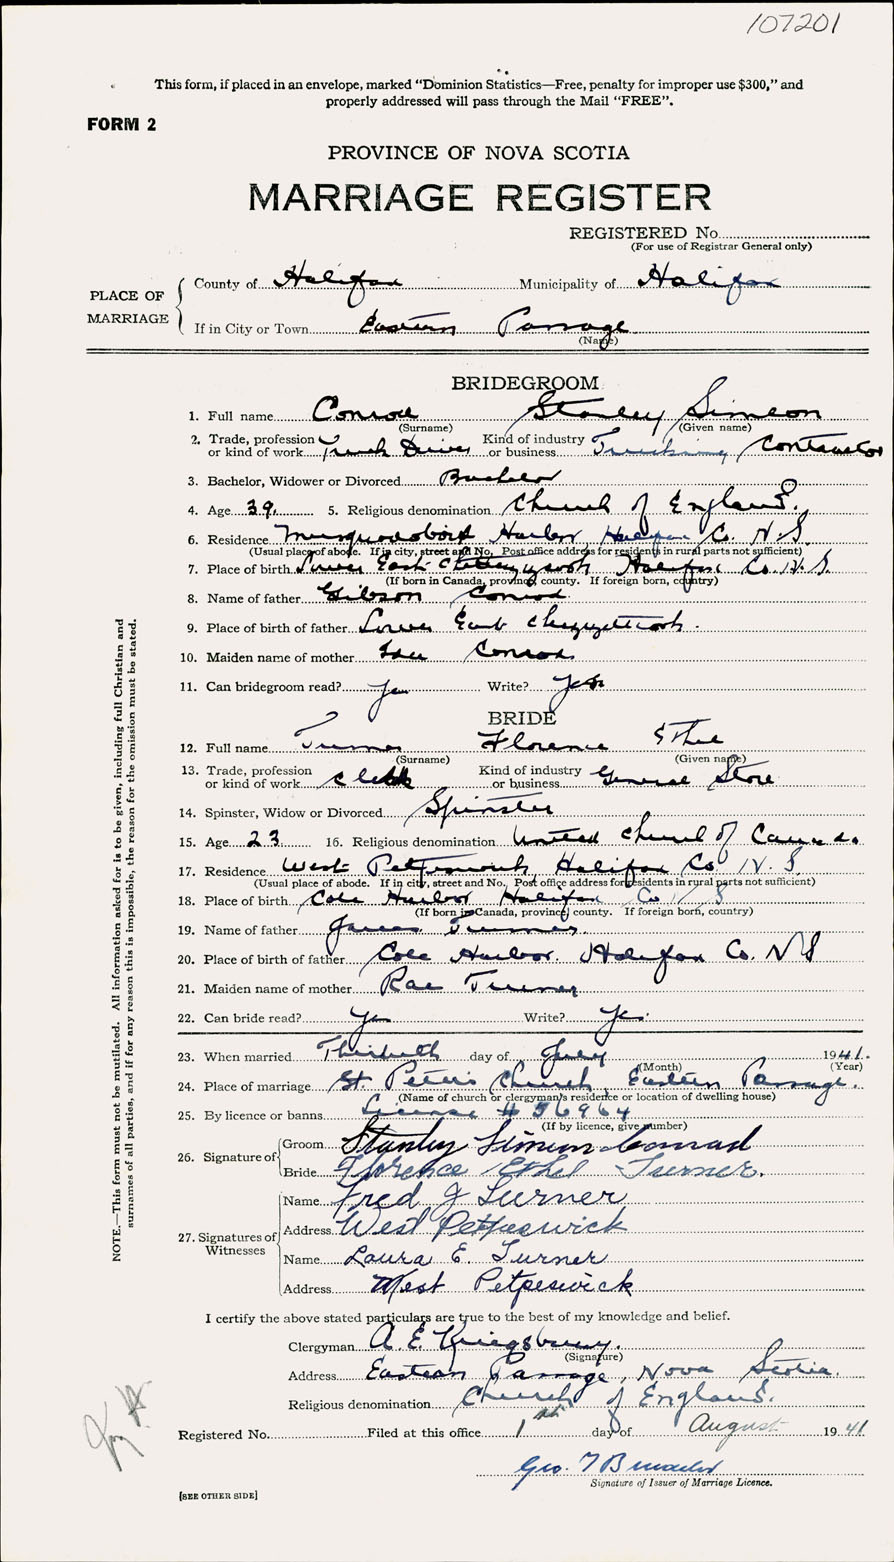 107201
This form, if placed in an envelope, marked "Dominion Statistics—Free, penalty for improper use $300," and
properly addressed will pass through the Mail "FREE".
FORM 2
PROVINCE OF NOVA SCOTIA
MARRIAGE REGISTER
REGISTERED No.
(For use of Registrar General only)
PLACE OF MARRIAGE
County of Halifax Municipality of Halifax
If in City or Town Eastern Passage
(Name)
BRIDEGROOM
1. Full name Conrod Stanley Simeon
(Surname) (Given name)
2. Trade, profession or kind of work Truck Driver Kind of industry or business Trucking Contractor
3. Bachelor, Widower or Divorced Bachelor
4. Age 39 5. Religious denomination Church of England.
6. Residence Musquodoboit Harbor Halifax Co. N.S.
(Usual place of abode. If in city, street and No. Post office address for residents in rural parts not sufficient)
7. Place of birth Lower East Chezzetcook Halifax Co. N.S.
(If born in Canada, province, county. If foreign born, country)
8. Name of father Gibson Conrod
9. Place of birth of father Lower East Chezzetcook.
10. Maiden name of mother Conrod
11. Can bridegroom read? Yes Write? Yes
BRIDE
12. Full name Turner Florence Ethel
(Surname) (Given name)
13. Trade, profession or kind of work Clerk Kind of industry or business General Store
14. Spinster, Widow or Divorced Spinster
15. Age 23 16. Religious denomination United Church of Canada
17. Residence West Petpeswick Halifax Co N.S.
(Usual place of abode. If in city, street and No. Post office address for residents in rural parts not sufficient)
18. Place of birth Cole Harbor Halifax Co N S
(If born in Canada, province, county. If foreign born, country)
19. Name of father James Turner.
20. Place of birth of father Cole Harbor. Halifax Co. N S
21. Maiden name of mother Rae Turner
22. Can bride read? Yes Write? Yes.
23. When married Thirtieth day of July 1941.
(Month) (Year)
24. Place of marriage St. Peter's Church, Eastern Passage.
(Name of church or clergyman's residence or location of dwelling house)
25. By licence or banns License # 56964
(If by licence, give number)
26. Signature of Groom Stanley Simeon Conrad
Bride Florence Ethel Turner.
27. Signatures of Witnesses
Name Fred J Turner
Address West Petpeswick
Name Laura E. Turner
Address West Petpeswick
I certify the above stated particulars are true to the best of my knowledge and belief.
Clergyman A. E. Kingsbury.
(Signature)
Address Eastern Passage, Nova Scotia.
Religious denomination Church of England.
Registered No. Filed at this office 1st day of August 1941
Geo. T
Signature of Issuer of Marriage Licence.
[SEE OTHER SIDE]
NOTE.—This form must not be mutilated. All information asked for is to be given, including full Christian and
surnames of all parties, and if for any reason this is impossible, the reason for the omission must be stated.